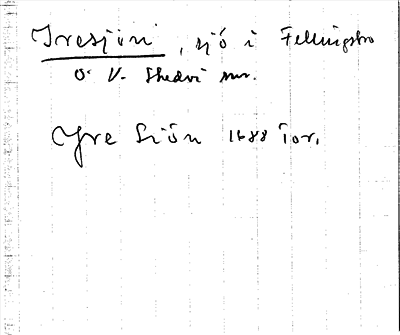 Iresjön, sjö i Fellingsbro
o. V. Skedvi snr.
Yre Siön 1688 Tor.